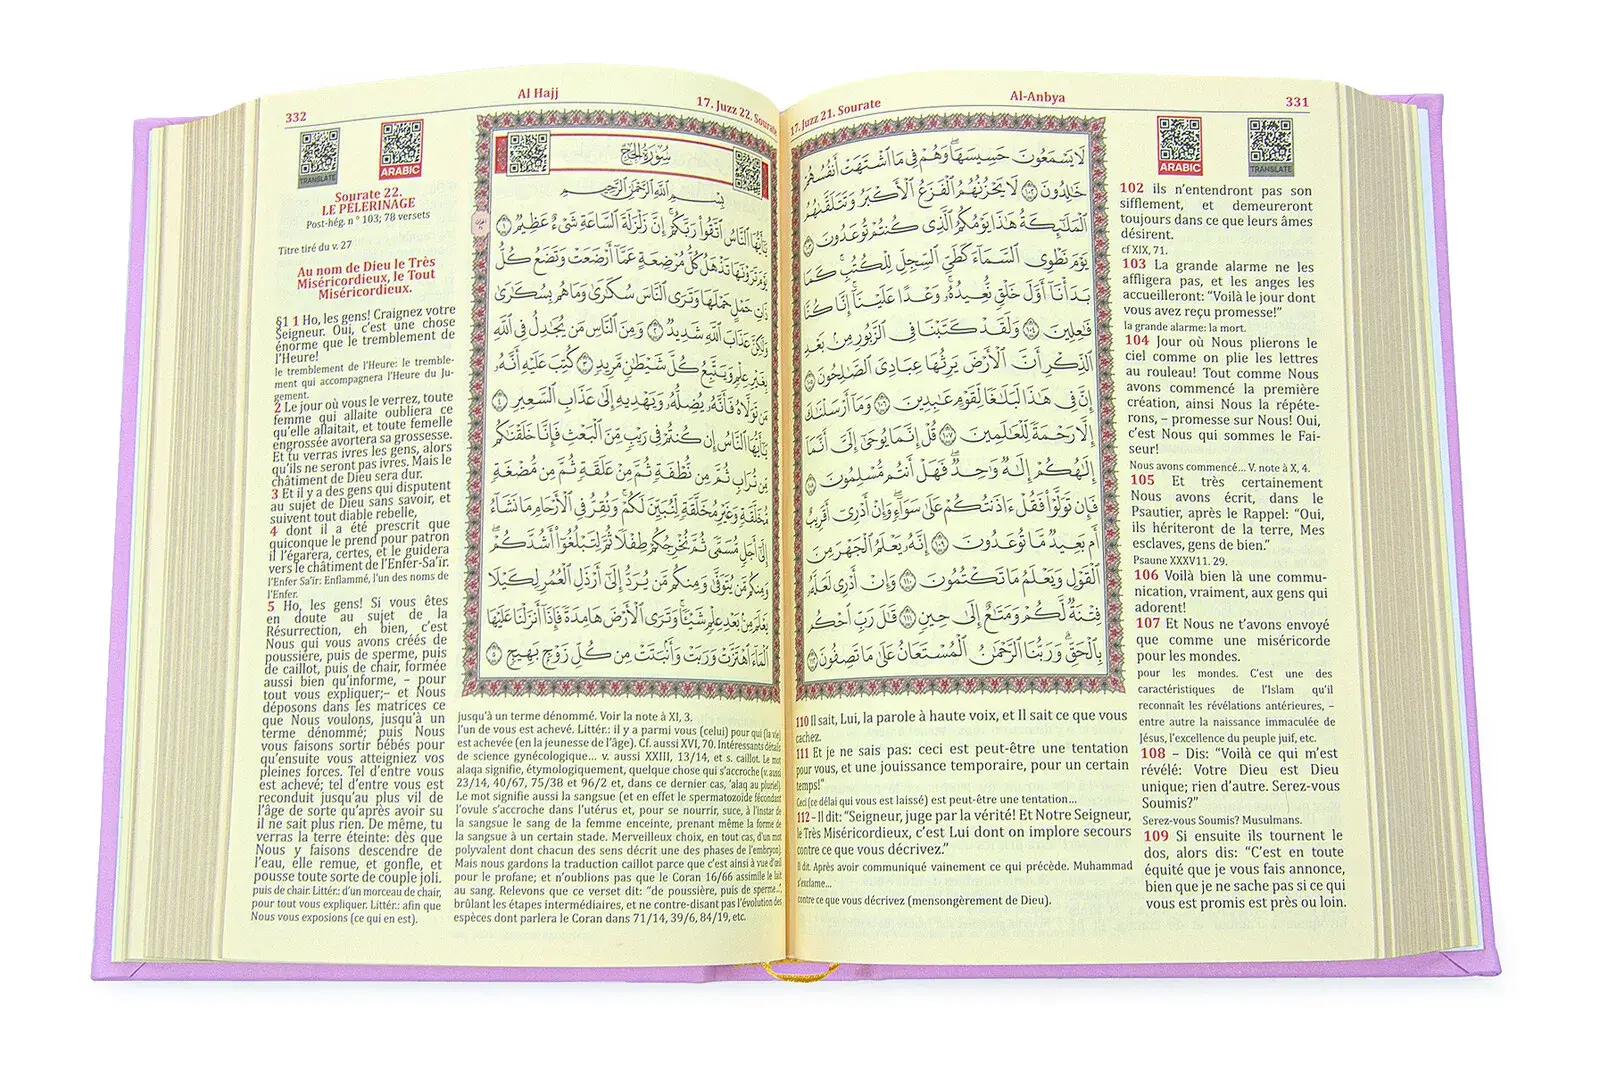 331
Al-Anbya
17. Juzz 21. Sourate
ARABIC
TRANSLATE
لَا يَسْمَعُونَ حَسِيسَهَاۖ وَهُمْ فِى مَا ٱشْتَهَتْ أَنفُسُهُمْ
خَٰلِدُونَ ١٠٢ لَا يَحْزُنُهُمُ ٱلْفَزَعُ ٱلْأَكْبَرُ وَتَتَلَقَّىٰهُمُ
ٱلْمَلَٰٓئِكَةُ هَٰذَا يَوْمُكُمُ ٱلَّذِى كُنتُمْ تُوعَدُونَ ١٠٣
يَوْمَ نَطْوِى ٱلسَّمَآءَ كَطَىِّ ٱلسِّجِلِّ لِلْكُتُبِۚ كَمَا
بَدَأْنَآ أَوَّلَ خَلْقٍ نُّعِيدُهُۥۚ وَعْدًا عَلَيْنَآۚ إِنَّا كُنَّا
فَٰعِلِينَ ١٠٤ وَلَقَدْ كَتَبْنَا فِى ٱلزَّبُورِ مِنۢ بَعْدِ
ٱلذِّكْرِ أَنَّ ٱلْأَرْضَ يَرِثُهَا عِبَادِىَ ٱلصَّٰلِحُونَ ١٠٥
إِنَّ فِى هَٰذَا لَبَلَٰغًا لِّقَوْمٍ عَٰبِدِينَ ١٠٦ وَمَآ أَرْسَلْنَٰكَ
إِلَّا رَحْمَةً لِّلْعَٰلَمِينَ ١٠٧ قُلْ إِنَّمَا يُوحَىٰٓ إِلَىَّ أَنَّمَآ
إِلَٰهُكُمْ إِلَٰهٌ وَٰحِدٌۖ فَهَلْ أَنتُم مُّسْلِمُونَ ١٠٨
فَإِن تَوَلَّوْا۟ فَقُلْ ءَاذَنتُكُمْ عَلَىٰ سَوَآءٍۖ وَإِنْ أَدْرِىٓ أَقَرِيبٌ
أَم بَعِيدٌ مَّا تُوعَدُونَ ١٠٩ إِنَّهُۥ يَعْلَمُ ٱلْجَهْرَ مِنَ
ٱلْقَوْلِ وَيَعْلَمُ مَا تَكْتُمُونَ ١١٠ وَإِنْ أَدْرِى لَعَلَّهُۥ
فِتْنَةٌ لَّكُمْ وَمَتَٰعٌ إِلَىٰ حِينٍ ١١١ قَٰلَ رَبِّ ٱحْكُم
بِٱلْحَقِّۗ وَرَبُّنَا ٱلرَّحْمَٰنُ ٱلْمُسْتَعَانُ عَلَىٰ مَا تَصِفُونَ ١١٢
102 ils n’entendront pas son
sifflement, et demeureront
toujours dans ce que leurs âmes
désirent.
cf XIX, 71.
103 La grande alarme ne les
affligera pas, et les anges les
accueilleront: “Voilà le jour dont
vous avez reçu promesse!”
la grande alarme: la mort.
104 Jour où Nous plierons le
ciel comme on plie les lettres
au rouleau! Tout comme Nous
avons commencé la première
création, ainsi Nous la répéte-
rons, – promesse sur Nous! Oui,
c’est Nous qui sommes le Fai-
seur!
Nous avons commencé... V. note à X, 4.
105 Et très certainement
Nous avons écrit, dans le
Psautier, après le Rappel: “Oui,
ils hériteront de la terre, Mes
esclaves, gens de bien.”
Psaune XXXV11. 29.
106 Voilà bien là une commu-
nication, vraiment, aux gens qui
adorent!
107 Et Nous ne t’avons envoyé
que comme une miséricorde
pour les mondes.
pour les mondes. C’est une des
caractéristiques de l’Islam qu’il
reconnaît les révélations antérieures, –
entre autre la naissance immaculée de
Jésus, l’excellence du peuple juif, etc.
108 – Dis: “Voilà ce qui m’est
révélé: Votre Dieu est Dieu
unique; rien d’autre. Serez-vous
Soumis?”
Serez-vous Soumis? Musulmans.
109 Si ensuite ils tournent le
dos, alors dis: “C’est en toute
équité que je vous fais annonce,
bien que je ne sache pas si ce qui
vous est promis est près ou loin.
110 Il sait, Lui, la parole à haute voix, et Il sait ce que vous
cachez.
111 Et je ne sais pas: ceci est peut-être une tentation
pour vous, et une jouissance temporaire, pour un certain
temps!”
Ceci (ce délai qui vous est laissé) est peut-être une tentation...
112 – Il dit: “Seigneur, juge par la vérité! Et Notre Seigneur,
le Très Miséricordieux, c’est Lui dont on implore secours
contre ce que vous décrivez.”
Il dit. Après avoir communiqué vainement ce qui précède. Muhammad
s’exclame...
contre ce que vous décrivez (mensongèrement de Dieu).
332
Al Hajj
17. Juzz 22. Sourate
TRANSLATE
ARABIC
سُورَةُ الحَجِّ
بِسْمِ ٱللَّهِ ٱلرَّحْمَٰنِ ٱلرَّحِيمِ
يَٰٓأَيُّهَا ٱلنَّاسُ ٱتَّقُوا۟ رَبَّكُمْۚ إِنَّ زَلْزَلَةَ ٱلسَّاعَةِ شَىْءٌ عَظِيمٌ ١
يَوْمَ تَرَوْنَهَا تَذْهَلُ كُلُّ مُرْضِعَةٍ عَمَّآ أَرْضَعَتْ وَتَضَعُ كُلُّ
ذَاتِ حَمْلٍ حَمْلَهَا وَتَرَى ٱلنَّاسَ سُكَٰرَىٰ وَمَا هُم بِسُكَٰرَىٰ
وَلَٰكِنَّ عَذَابَ ٱللَّهِ شَدِيدٌ ٢ وَمِنَ ٱلنَّاسِ مَن يُجَٰدِلُ فِى ٱللَّهِ
بِغَيْرِ عِلْمٍ وَيَتَّبِعُ كُلَّ شَيْطَٰنٍ مَّرِيدٍ ٣ كُتِبَ عَلَيْهِ أَنَّهُۥ
مَن تَوَلَّاهُ فَأَنَّهُۥ يُضِلُّهُۥ وَيَهْدِيهِ إِلَىٰ عَذَابِ ٱلسَّعِيرِ ٤
يَٰٓأَيُّهَا ٱلنَّاسُ إِن كُنتُمْ فِى رَيْبٍ مِّنَ ٱلْبَعْثِ فَإِنَّا خَلَقْنَٰكُم
مِّن تُرَابٍ ثُمَّ مِن نُّطْفَةٍ ثُمَّ مِنْ عَلَقَةٍ ثُمَّ مِن مُّضْغَةٍ
مُّخَلَّقَةٍ وَغَيْرِ مُخَلَّقَةٍ لِّنُبَيِّنَ لَكُمْۚ وَنُقِرُّ فِى ٱلْأَرْحَامِ مَا نَشَآءُ
إِلَىٰٓ أَجَلٍ مُّسَمًّى ثُمَّ نُخْرِجُكُمْ طِفْلًا ثُمَّ لِتَبْلُغُوٓا۟ أَشُدَّكُمْۖ
وَمِنكُم مَّن يُتَوَفَّىٰ وَمِنكُم مَّن يُرَدُّ إِلَىٰٓ أَرْذَلِ ٱلْعُمُرِ لِكَيْلَا
يَعْلَمَ مِنۢ بَعْدِ عِلْمٍ شَيْـًٔاۚ وَتَرَى ٱلْأَرْضَ هَامِدَةً فَإِذَآ أَنزَلْنَا عَلَيْهَا
ٱلْمَآءَ ٱهْتَزَّتْ وَرَبَتْ وَأَنۢبَتَتْ مِن كُلِّ زَوْجٍۭ بَهِيجٍ ٥
Sourate 22.
LE PÈLERINAGE
Post-hég. n° 103; 78 versets
Titre tiré du v. 27
Au nom de Dieu le Très
Miséricordieux, le Tout
Miséricordieux.
§1 1 Ho, les gens! Craignez votre
Seigneur. Oui, c’est une chose
énorme que le tremblement de
l’Heure!
le tremblement de l’Heure: le tremble-
ment qui accompagnera l’Heure du Ju-
gement.
2 Le jour où vous le verrez, toute
femme qui allaite oubliera ce
qu’elle allaitait, et toute femelle
engrossée avortera sa grossesse.
Et tu verras ivres les gens, alors
qu’ils ne seront pas ivres. Mais le
châtiment de Dieu sera dur.
3 Et il y a des gens qui disputent
au sujet de Dieu sans savoir, et
suivent tout diable rebelle,
4 dont il a été prescrit que
quiconque le prend pour patron
il l’égarera, certes, et le guidera
vers le châtiment de l’Enfer-Sa’ir.
l’Enfer Sa’ir: Enflammé, l’un des noms de
l’Enfer.
5 Ho, les gens! Si vous êtes
en doute au sujet de la
Résurrection, eh bien, c’est
Nous qui vous avons créés de
poussière, puis de sperme, puis
de caillot, puis de chair, formée
aussi bien qu’informe, – pour
tout vous expliquer;– et Nous
déposons dans les matrices ce
que Nous voulons, jusqu’à un
terme dénommé; puis Nous
vous faisons sortir bébés pour
qu’ensuite vous atteigniez vos
pleines forces. Tel d’entre vous
est achevé; tel d’entre vous est
reconduit jusqu’au plus vil de
l’âge de sorte qu’après avoir su
il ne sait plus rien. De même, tu
verras la terre éteinte: dès que
Nous y faisons descendre de
l’eau, elle remue, et gonfle, et
pousse toute sorte de couple joli.
puis de chair. Littér.: d’un morceau de chair,
pour tout vous expliquer. Littér.: afin que
Nous vous exposions (ce qui en est).
jusqu’à un terme dénommé. Voir la note à XI, 3.
l’un de vous est achevé. Littér.: il y a parmi vous (celui) pour qui (la vie)
est achevée (en la jeunesse de l’âge). Cf. aussi XVI, 70. Intéressants détails
de science gynécologique... v. aussi XXIII, 13/14, et s. caillot. Le mot
alaqa signifie, étymologiquement, quelque chose qui s’accroche (v. aussi
23/14, 40/67, 75/38 et 96/2 et, dans ce dernier cas, ’alaq au pluriel).
Le mot signifie aussi la sangsue (et en effet le spermatozoïde fécondant
l’ovule s’accroche dans l’utérus et, pour se nourrir, suce, à l’instar de
la sangsue le sang de la femme enceinte, prenant même la forme de
la sangsue à un certain stade. Merveilleux choix, en tout cas, d’un mot
polyvalent dont chacun des sens décrit une des phases de l’embryon).
Mais nous gardons la traduction caillot parce que c’est ainsi à vue d’œil
pour le profane; et n’oublions pas que le Coran 16/66 assimile le lait
au sang. Relevons que ce verset dit: “de poussière, puis de sperme...”,
brûlant les étapes intermédiaires, et ne contre-disant pas l’évolution des
espèces dont parlera le Coran dans 71/14, 39/6, 84/19, etc.